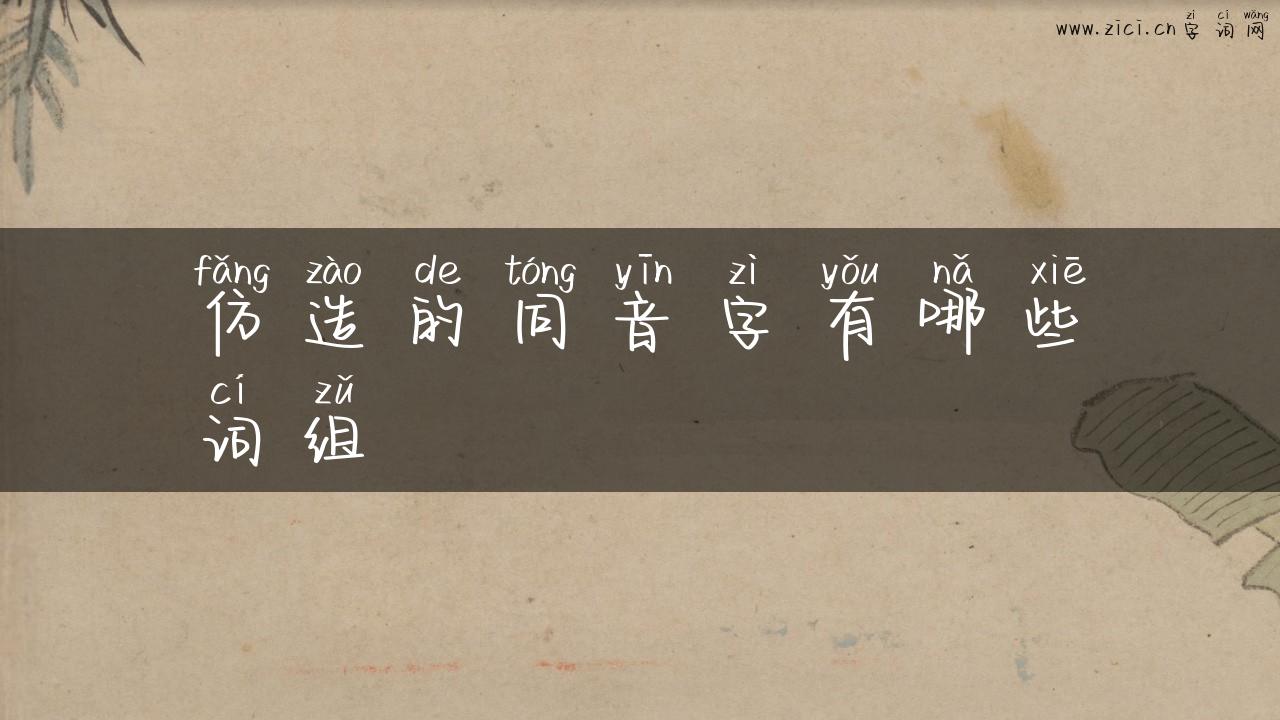 zì cí wǎng
www.zici.cn 字词网
fǎng zào de tóng yīn zì yǒu nǎ xiē
仿造的同音字有哪些
cí zǔ
词组